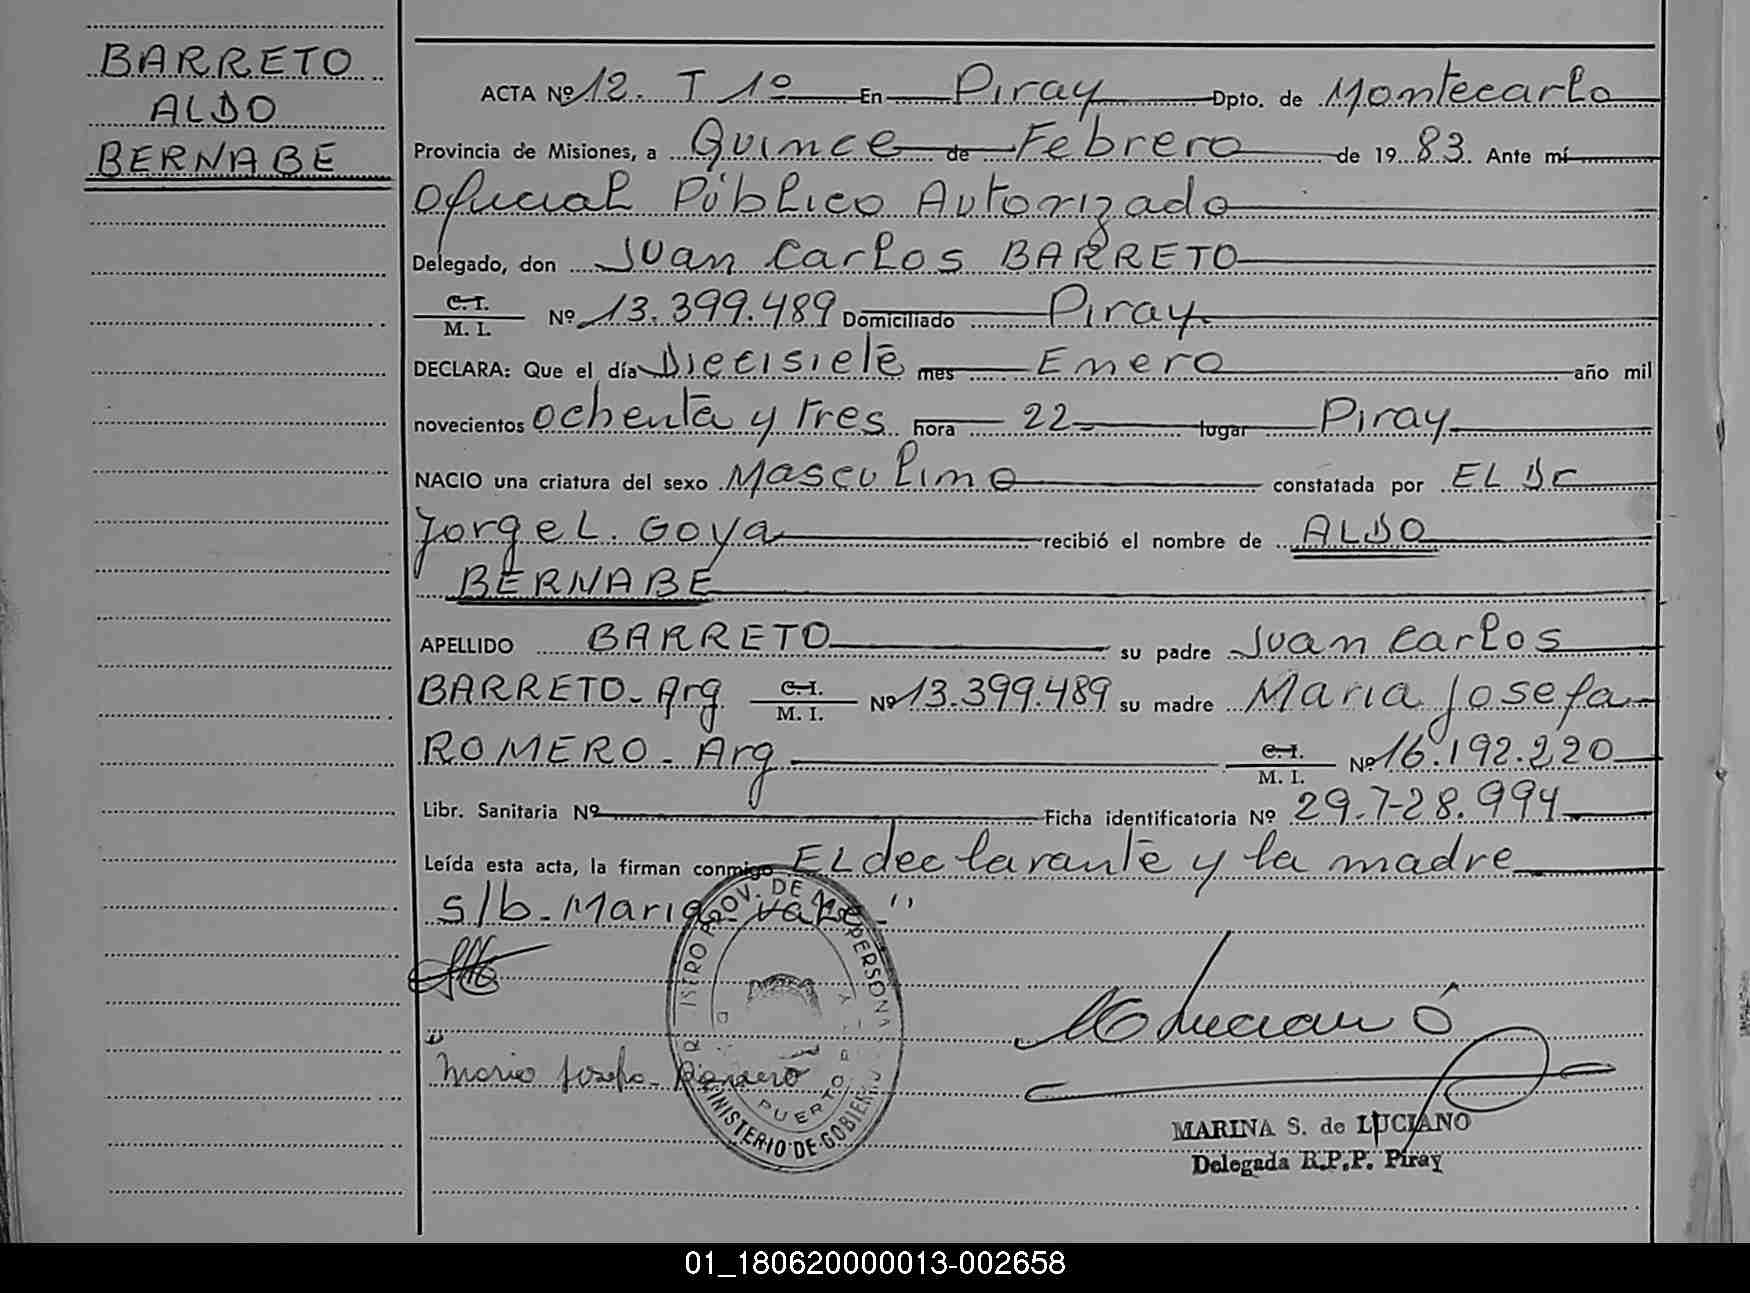 BARRETO
ALDO
BERNABE
ACTA Nº 12. T 1º En Piray Dpto. de Montecarlo
Provincia de Misiones, a Quince de Febrero de 1983. Ante mí
Oficial Público Autorizado
Delegado, don Juan Carlos BARRETO
C. I.
M. I. Nº 13.399.489 Domiciliado Piray
DECLARA: Que el día Diecisiete mes Enero año mil
novecientos ochenta y tres hora 22 lugar Piray
NACIO una criatura del sexo Masculino constatada por EL Dr
Jorge L. Goya recibió el nombre de ALDO
BERNABE
APELLIDO BARRETO su padre Juan Carlos
BARRETO - Arg C. I. M. I. Nº 13.399.489 su madre Maria Josefa
ROMERO - Arg C. I. M. I. Nº 16.192.220
Libr. Sanitaria Nº Ficha identificatoria Nº 29.7-28.994
Leída esta acta, la firman conmigo EL declarante y la madre
s/b - Maria - vale "
Maria Josefa Romero
PROV. DE PERSONA
PUERTO
MINISTERIO DE GOBIERNO
MARINA S. de LUCIANO
Delegada R.P.P. Piray
01_180620000013-002658